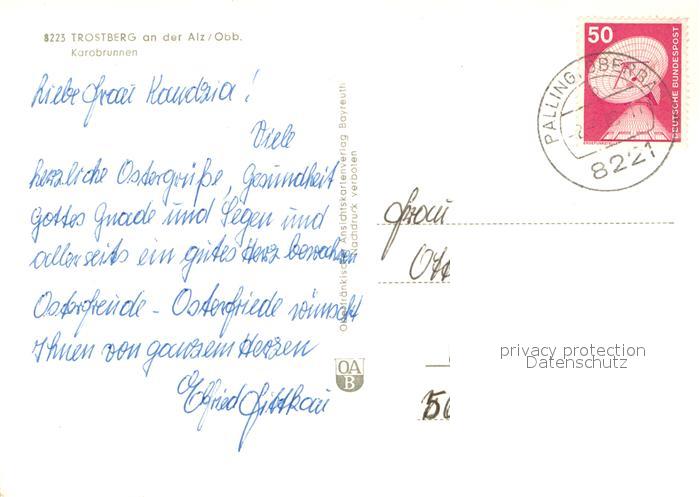 8223 TROSTBERG an der Alz/Obb.
Karobrunnen
Liebe Frau
Viele
herzliche Ostergrüße, Gesundheit
Gottes Gnade und Segen und
allerseits ein gutes Herz bewahren
Osterfreude - Osterfriede wünscht
Ihnen von ganzem Herzen
Elfriede
Oberfränkischer Ansichtskartenverlag Bayreuth
Nachdruck verboten
OA
B
50
DEUTSCHE BUNDESPOST
PALLING, OBERBAY
8221
Frau
Ott
56
privacy protection
Datenschutz